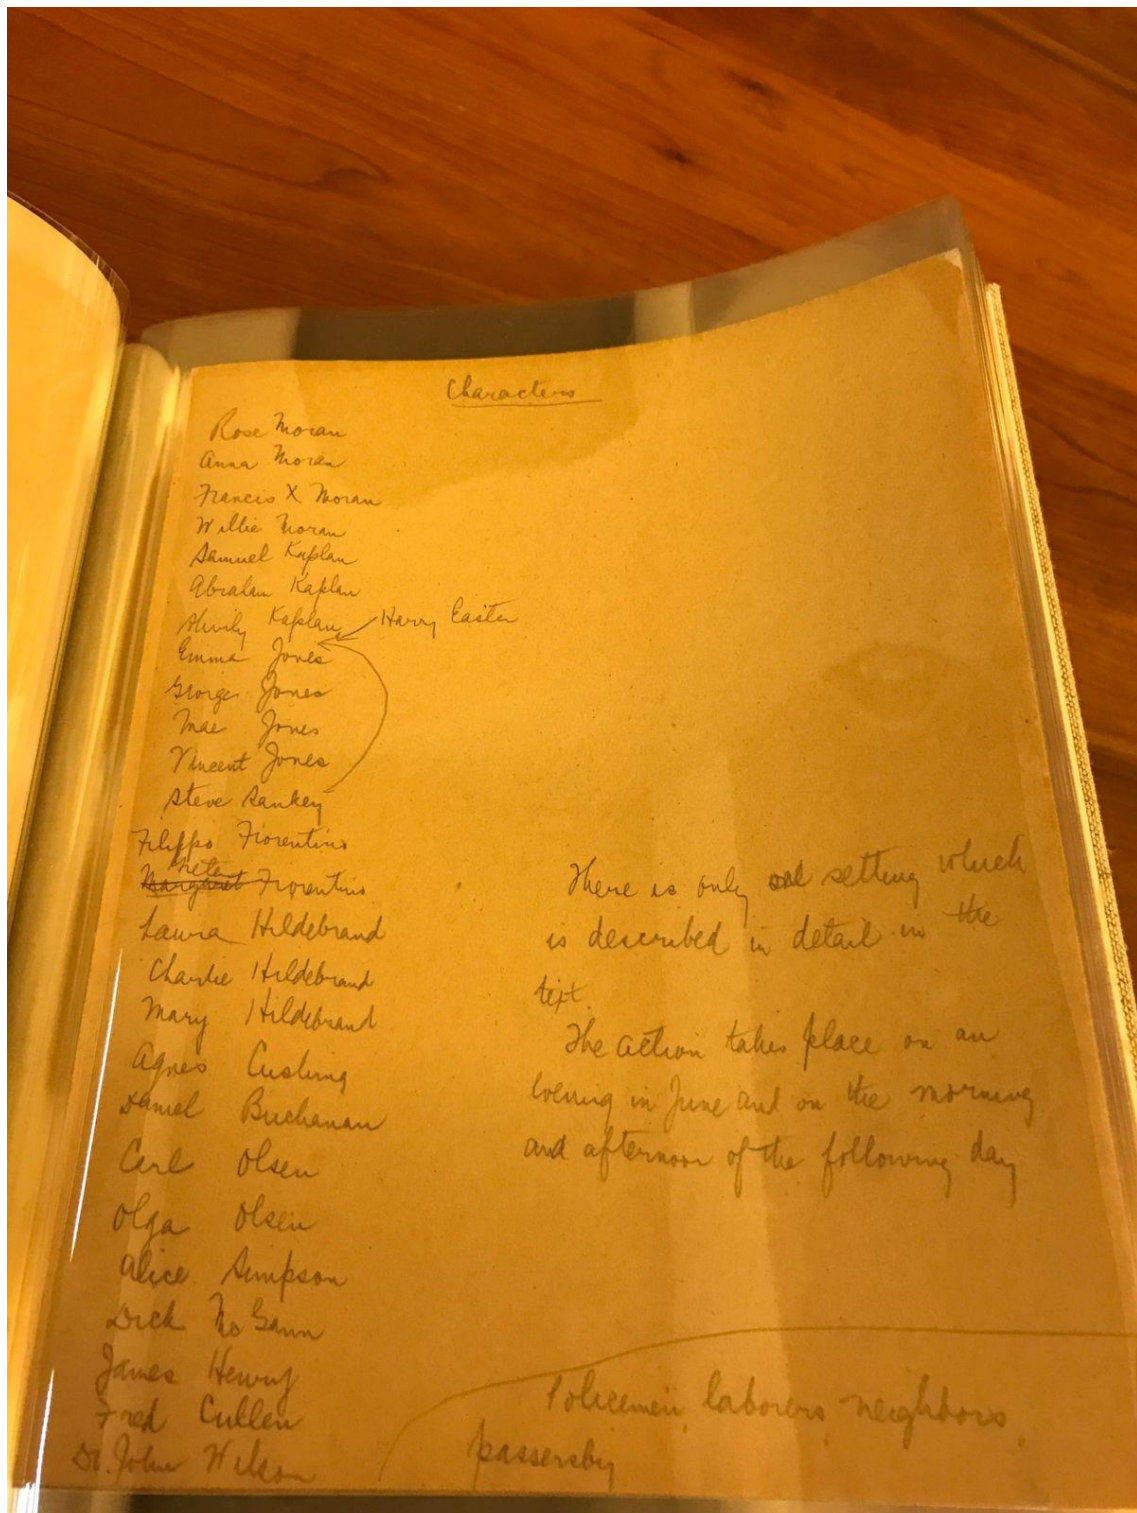 Characters
Rose Moran
Anna Moran
Francis X. Moran
Willie Moran
Samuel Kaplan
Abraham Kaplan
Shirley Kaplan
Harry Easter
Emma Jones
George Jones
Mae Jones
Vincent Jones
Steve Sankey
Filippo Fiorentino
Greta
Margaret Fiorentino
Laura Hildebrand
Charlie Hildebrand
Mary Hildebrand
Agnes Cushing
Daniel Buchanan
Carl Olsen
Olga Olsen
Alice Simpson
Dick McGann
James Henry
Fred Cullen
Dr. John Wilson
There is only one setting which
is described in detail in the
text.
The action takes place on an
evening in June and on the morning
and afternoon of the following day
Policemen, laborers, neighbors,
passersby